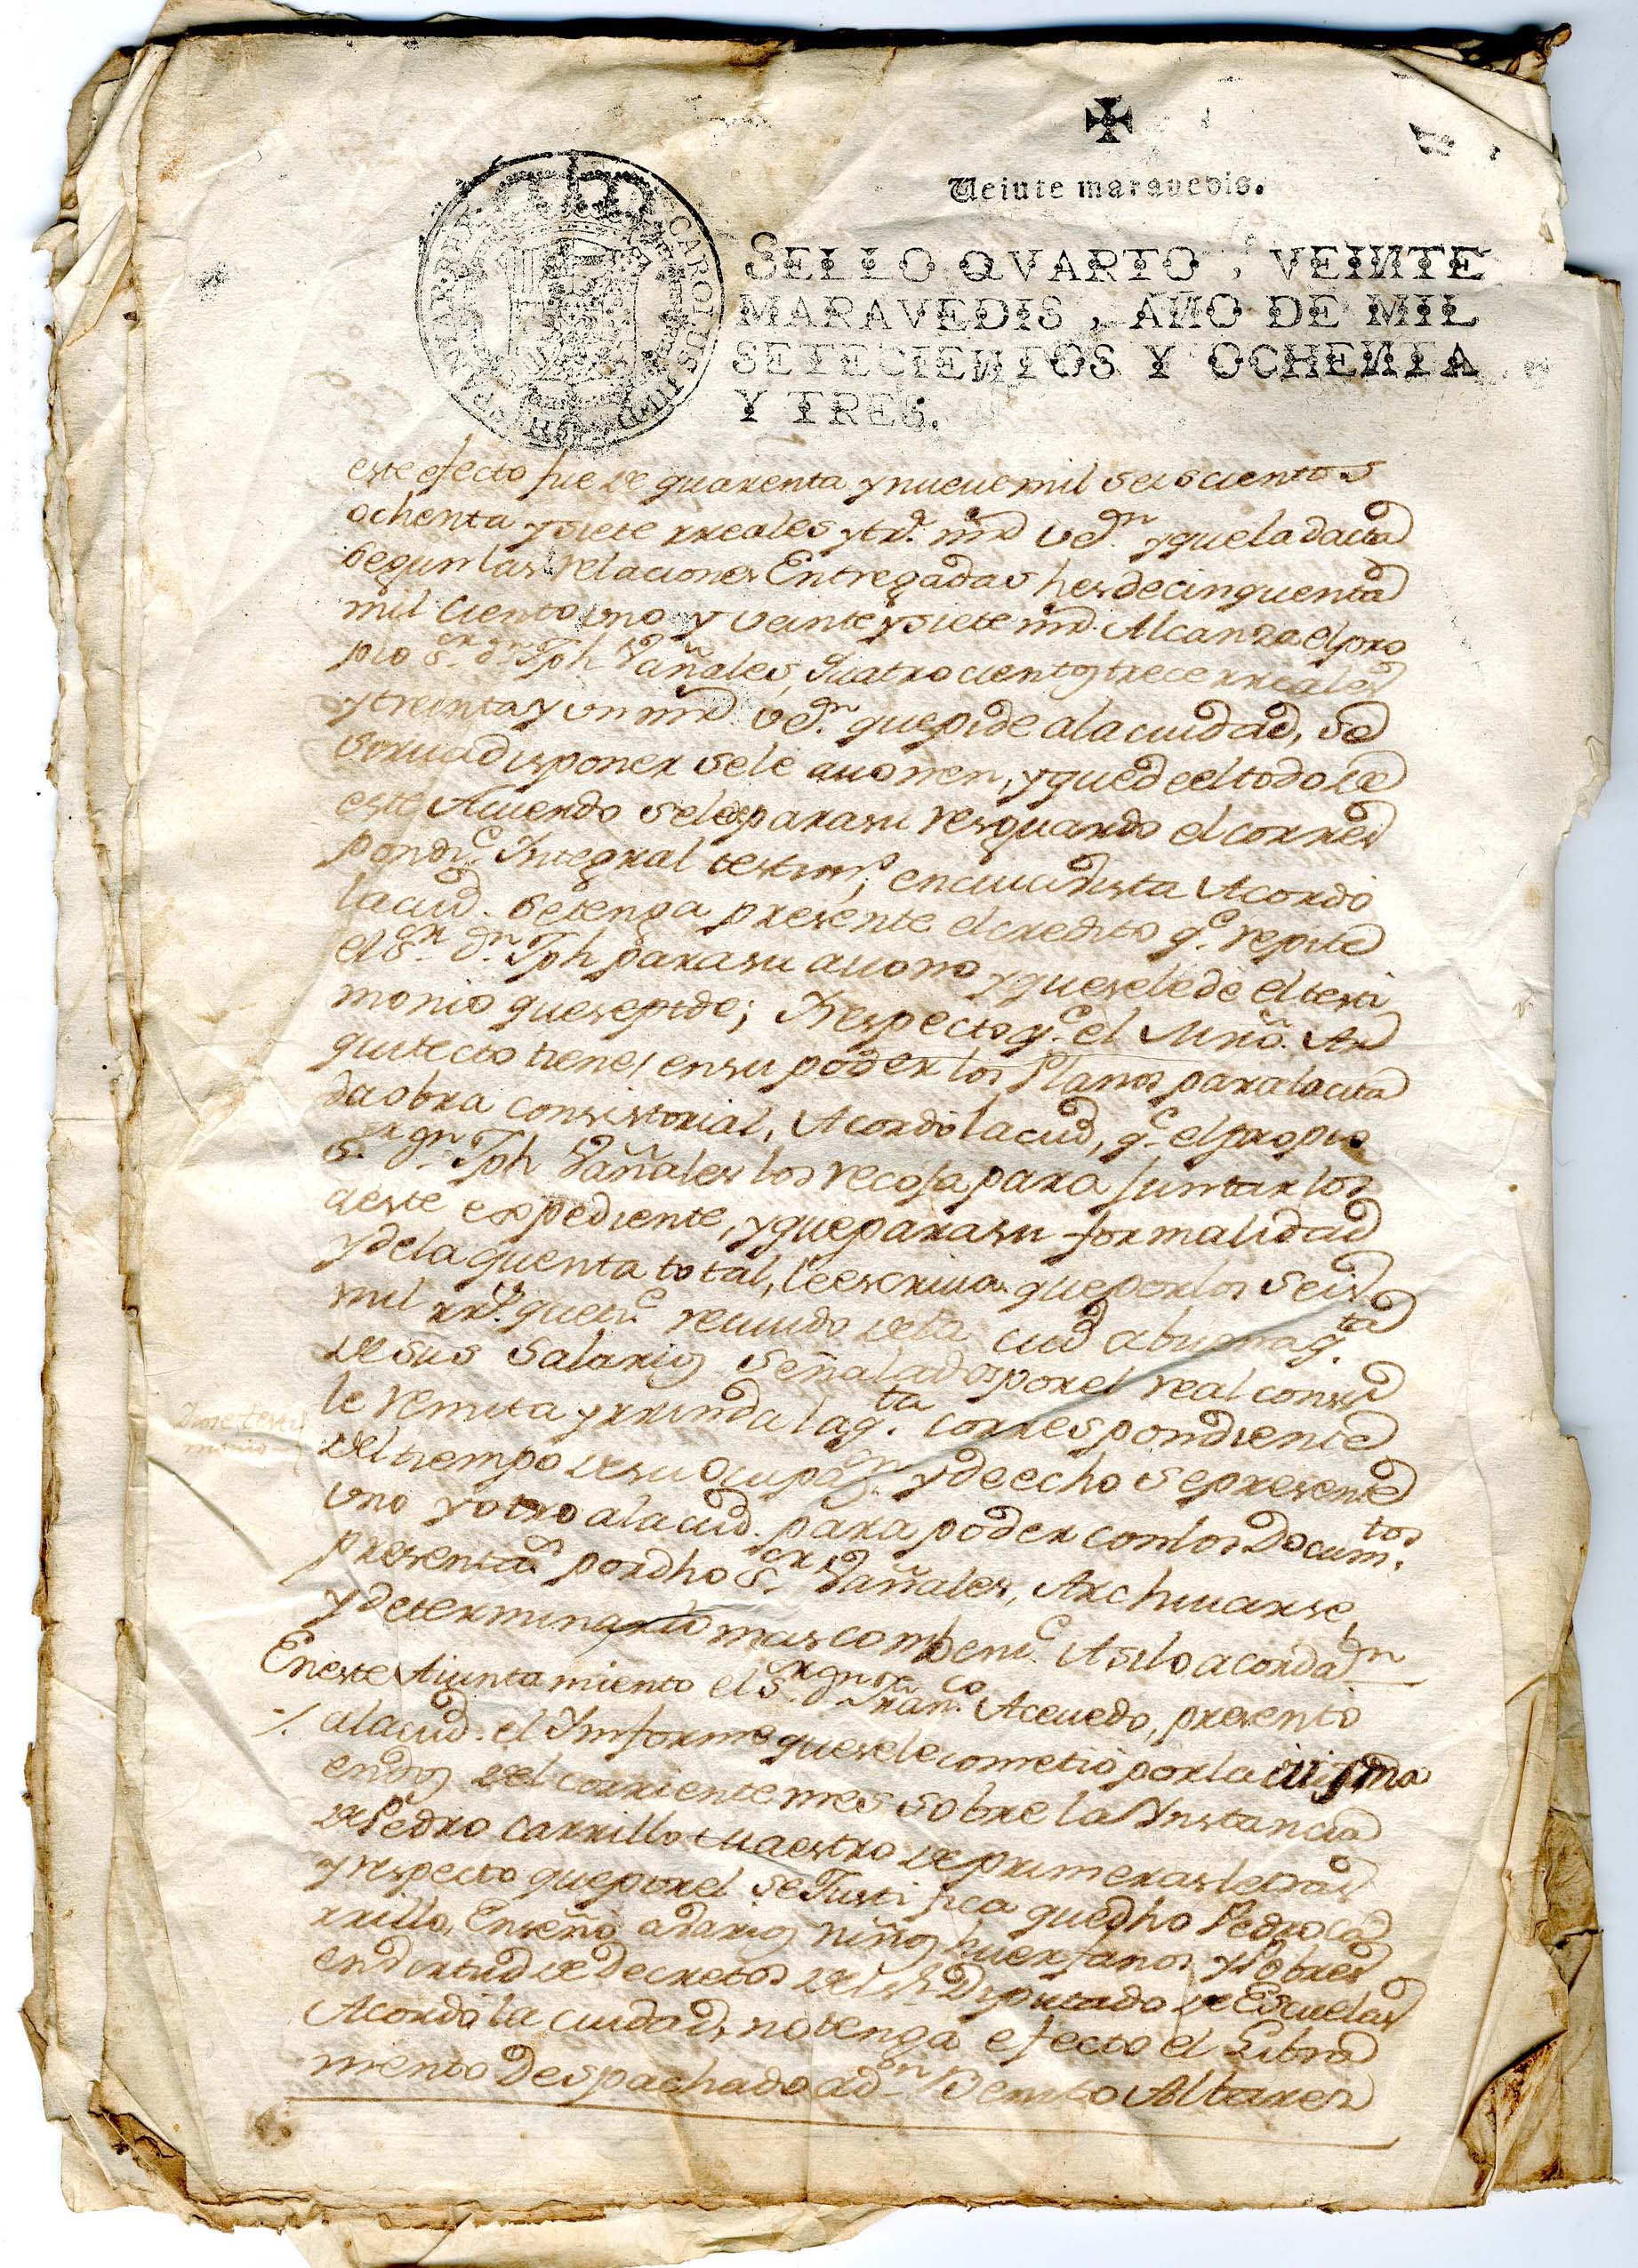 Veinte maravedis.
SELLO QVARTO, VEINTE
MARAVEDIS, AÑO DE MIL
SETECIENTOS Y OCHENTA
Y TRES.
CAROLUS III D G HISPANIAR REX
este efecto fue de quarenta y nueue mil seiscientos
ochenta y siete rreales y tr.ª mrd vº.n y que la dacta
segun las relaciones Entregadas hes de cinquenta
mil ciento uno y veinte y siete mrd. Alcanza el pro
pio S.r d.n Jph Vañales, quatrocientos trece rreales
y treinta y un mrd vº.n que pide a la ciudad, se
sirua disponer se le auonen, y que de el todo de
este Acuerdo se le de para su resguardo el corres
pond.te Integral testim.o; en cuia vista Acordó
la ciud. se tenga presente el credito q.e repite
el S.r d.n Jph para su auono y que se le de el testi
monio que se pide; Y respecto q.e el Mrō. Ar
quitecto tiene en su poder los Planos para la cita
da obra consistorial, Acordó la ciud, q.e el propio
S.r d.n Jph Vañales los recoja para juntarlos
a este expediente, y que para su formalidad
y de la quenta total, le escriua que por los seis
mil rr.s que tie.e reciuido de la ciud a buena q.ta
de sus salarios señalados por el real consejo
le remita y rrinda la q.ta correspondiente
del tiempo de su ocupaz.on y de echo se presente
uno y otro a la ciud. para poder con los Docum.tos
presentados por dho S.r Vañales, Archiuarse,
y determinar lo mas combeni.e Asi lo acordaron
Dime testi
monio
En este Aiuntamiento el S.r d.n Fran.co Aceuedo, presentó
a la ciud. el Ymforme que se le cometió por la misma
en dos del corriente mes sobre la Ynstancia
de Pedro Carrillo Maestro de primeras letras
y respecto que por el se Justifica que dho Pedro Ca
rrillo, Enseño a varios niños huerfanos y Pobres
en virtud de decretos del S.r Diputado de Escuelas
Acordó la ciudad, no tenga efecto el Libra
mento Despachado a d.n Benito Albares